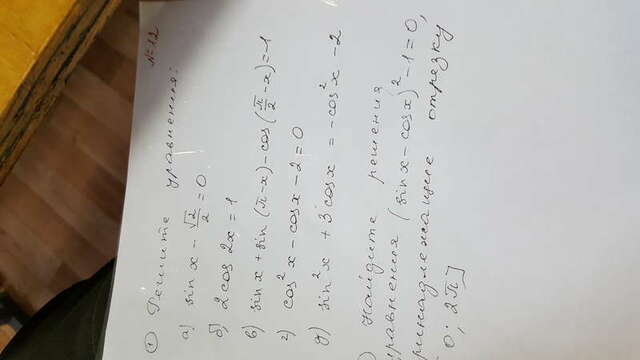 №12
① Решите уравнения:
а) sin x - √2/2 = 0
б) 2cos 2x = 1
в) sin x + sin (π - x) - cos (π/2 - x) = 1
г) cos² x - cos x - 2 = 0
д) sin² x + 3 cos x = - cos² x - 2
) Найдите решения
уравнения (sin x - cos x)² - 1 = 0,
принадлежащие отрезку
0; 2π]